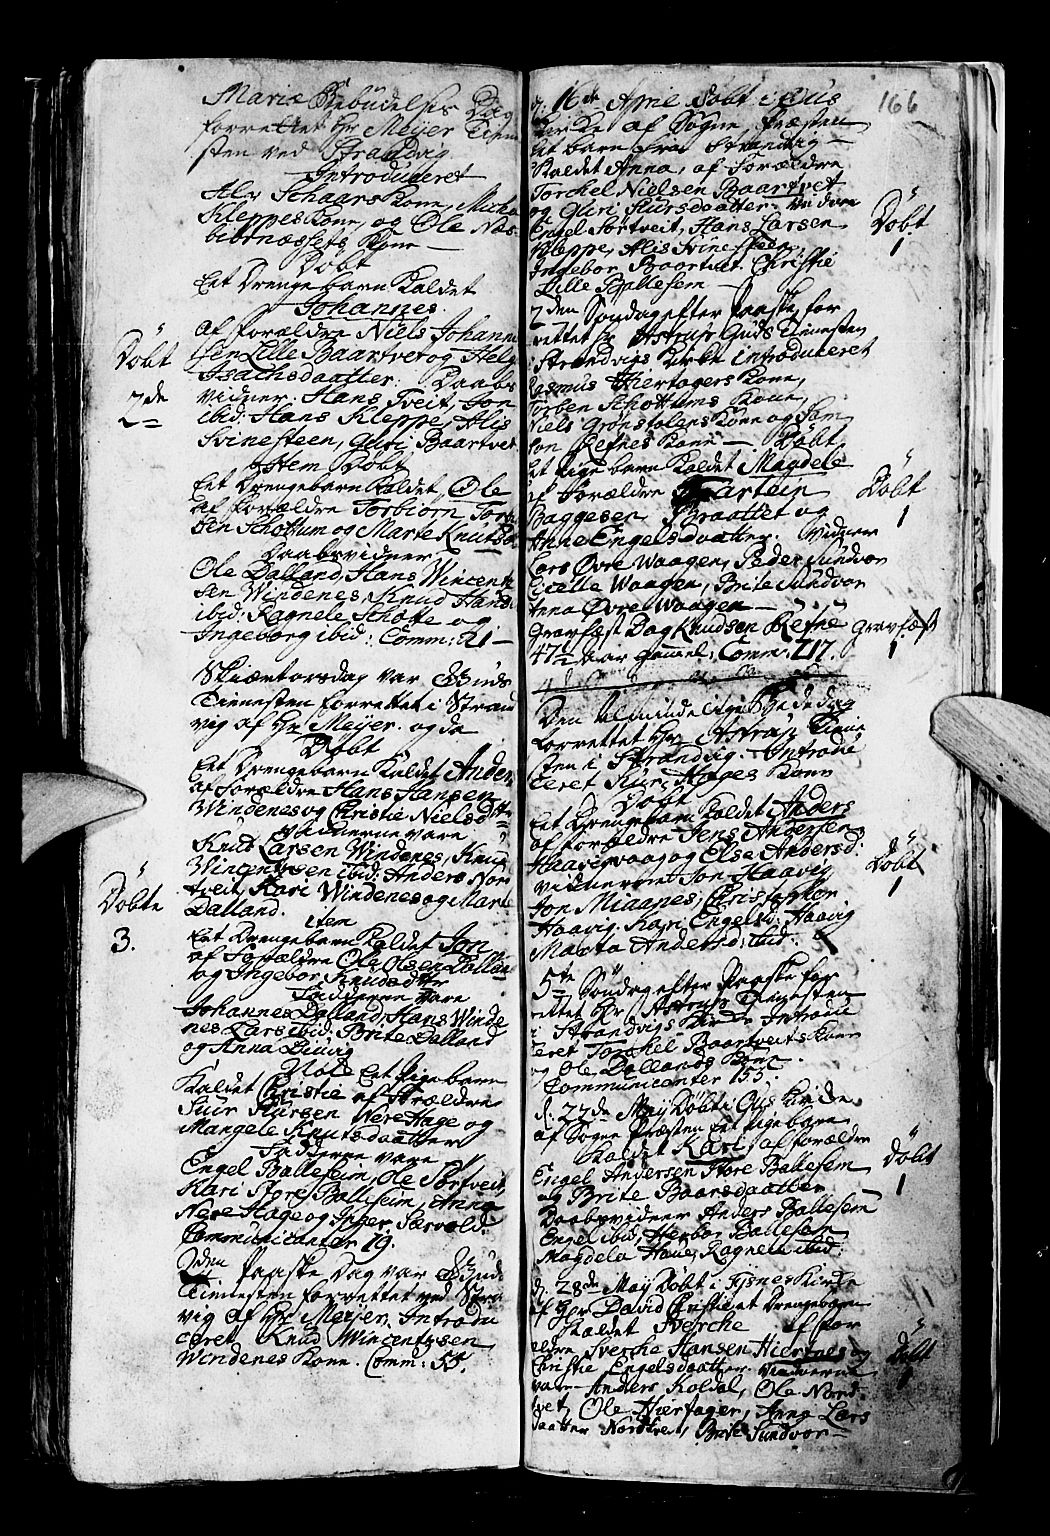 Mariæ Bebudelses Dag
forrettet Hr Meijer Tienn
sten ved Strandvig
Introduceret
Als Schaars Kone, Micha
Kleppes Kone, og Ole Næs
Kone
Døbt
Eet Drengebarn Kaldet
Johannes.
Af forældre Niels Johann
sen Lille Baartvet og Hel
Isachsdaatter: Daabs
Døbt
2de
vidner. Hans Tveit, Jon
ibid: Hans Kleppe, Alis
Svinesteen, Guri Baartvet
Item Døbt
Eet Drengebarn Kaldet Ole
af forældre Torbiorn Tor
sen Schottum og Marte Knuts
Daabsvidner,
Ole Dalland, Hans Wincent
sen Windenes, Knud Hans
ibid: Ragnele Schotte og
Ingeborg ibid: Comm: 21 —
Skiærtorsdag var Guds
Tienesten forrettet i Stran
vig af Hr Meijer. og da
Døbt
Eet Drengebarn Kaldet Anders
af forældre Hans Hansen
Windenes og Christie Nielsd
vidnerne vare
Knut Larsen Windenes, Knut
Wincentssen ibid: Anders Nor
tveit, Kari Windenes og Marte
Dalland.
Døbte
3.
item
Eet Drengebarn Kaldet Jon
af Forældre Ole Olsen Dallan
og Ingebor Knudsdttr
Fadderne vare
Johannes Dalland, Hans Winde
nes Lars ibid: Brite Dalland
og Anna
Note Eet Pigebarn
Kaldet Christie af Forældre
Siur Siursen Nere Hage og
Mangele Knutsdaatter
Fadderne vare
Engel Balleseim, Ole Sortveit,
Kari Store Balleseim, Anna
Nere Hage og Inger Særvold:
Communicanter 19.
2den Paaske Dag var Guds
Tienesten forrettet ved Stra
vig af Hr Meijer, Introdu
ceret Knud Wincentssen
Windenes Kone. Comm: 55.
166
d. 16de April Døbt i Ous
Kirke af Sogne Præsten
eet barn fra Strandvig —
Kaldet Anna, af Forældre
Torchel Nielsen Baartvet
og Guri Siursdaatter. Vidner
Engel Sortveit, Hans Larsen
Kleppe, Alis Svinesteen,
Ingebor Baartvet. Christie
Lille Ballesem —
Døbt
1
2den Søndag efter Paaske for
rettet Hr Astrup Guds Tienesten
i Strandvigs Kirke Introduceret
Rasmus Hiertagers Kone,
Torben Schottums Kone,
Niels Grønstolens Kone og Sam
son Refnes Kone — Døbt
et Pigebarn Kaldet Magdele
af Forældre Martein
Baggesen, Braattet og
Anne Engelsdaatter. Vidner
Lars Øvre Waagen, Peder Sundvor
Cicelle Waagen, Brite Sundvor
Anna Øvre Waagen —
Døbt
1
Gravfæst Dag Knudsen Refne
47 1/2 aar gammel; Comm: 217.
Gravfæst
1
Den almindelige Bededag
forrettet Hr Astrup Tiene
sten i Strandvig. Introdu
ceret Siur Hages Kone
Døbt
Eet Drengebarn Kaldet Anders
af forældre Jens Andersen
Haavigvaag og Else Andersd:
vidnerne Jon Haavig
Jon Miaanes, Christopher
Haavig. Kari Engelsd: Haavig
Marta Andersd: ibid:
Døbt
1
5te Søndag efter Paaske for
rettet Hr Astrup Tienesten
i Strandvigs Kirke Introdu
ceret Torchel Baartveits Kone
og Ole Dallands Kone.
Communicanter 155.
d. 27de Maij Døbt i Ous Kirke
af Sogne Præsten eet Pigebarn
Kaldet Kari, af forældre
Engel Andersen Store Ballesem
og Brite Baarsdaatter
Daabsvidner Anders Ballesem
Engel ibid, Herbor Ballesem
Magdela Haue, Ragnele ibid:
Døbt
1
d. 28de Maij Døbt i Tysnes Kirke
af Hr David Christie et Drengebarn
Kaldet Sverche af for
ældre Sverche Hansen Hiertnes og
Christie Engelsdaatter. Vidnerne
vare Anders Koldal, Ole Nord
tvet, Ole Hiertager, Anna Lars
daatter Nordtveit, Brite Sundvor —
Døbt
1